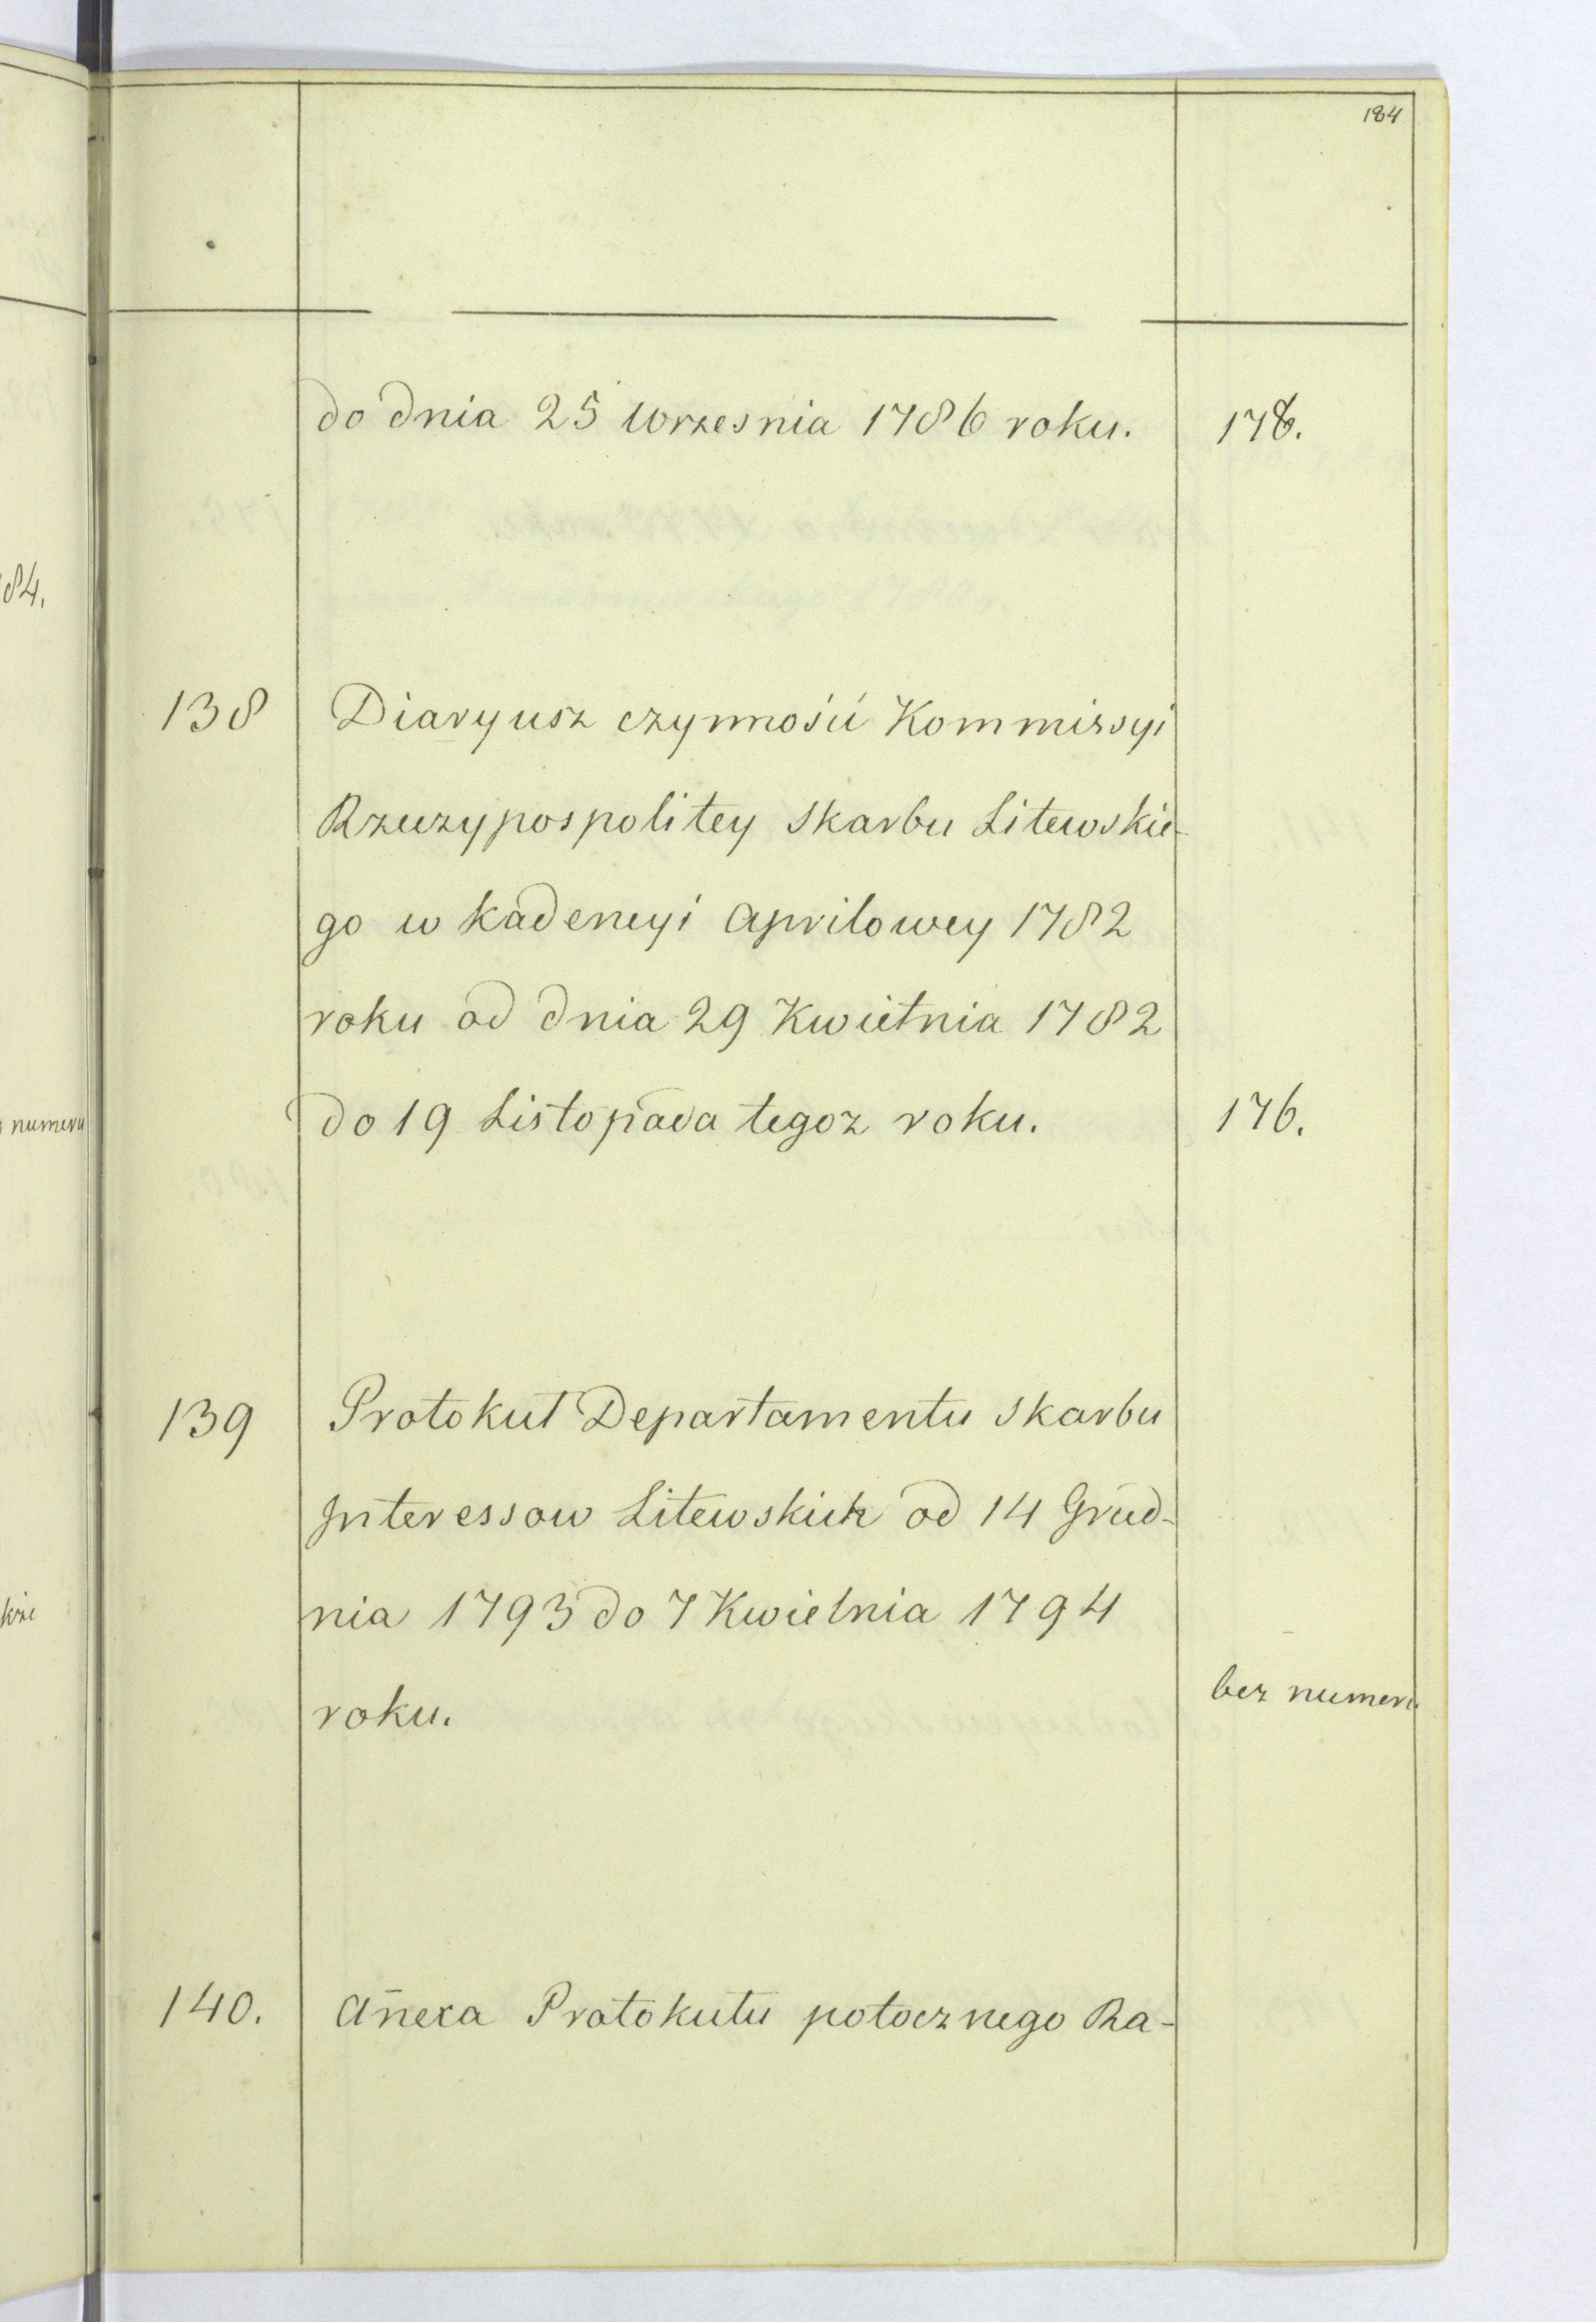 184
do dnia 25 Wrzesnia 1786 roku.
138 Diaryusz czynności Kommissyi
Rzeczypospolitey Skarbu Litewskie-
go w kadencyi Aprilowey 1782
roku od dnia 29 Kwietnia 1782
do 19 Listopada tegoz roku. 176.
139 Protokuł Departamentu Skarbu
Interessow Litewskich od 14 Grud-
nia 1793 do 7 Kwietnia 1794
roku. bez numeru
140. Anexa Protokułu potocznego Ra-
84.
numeru